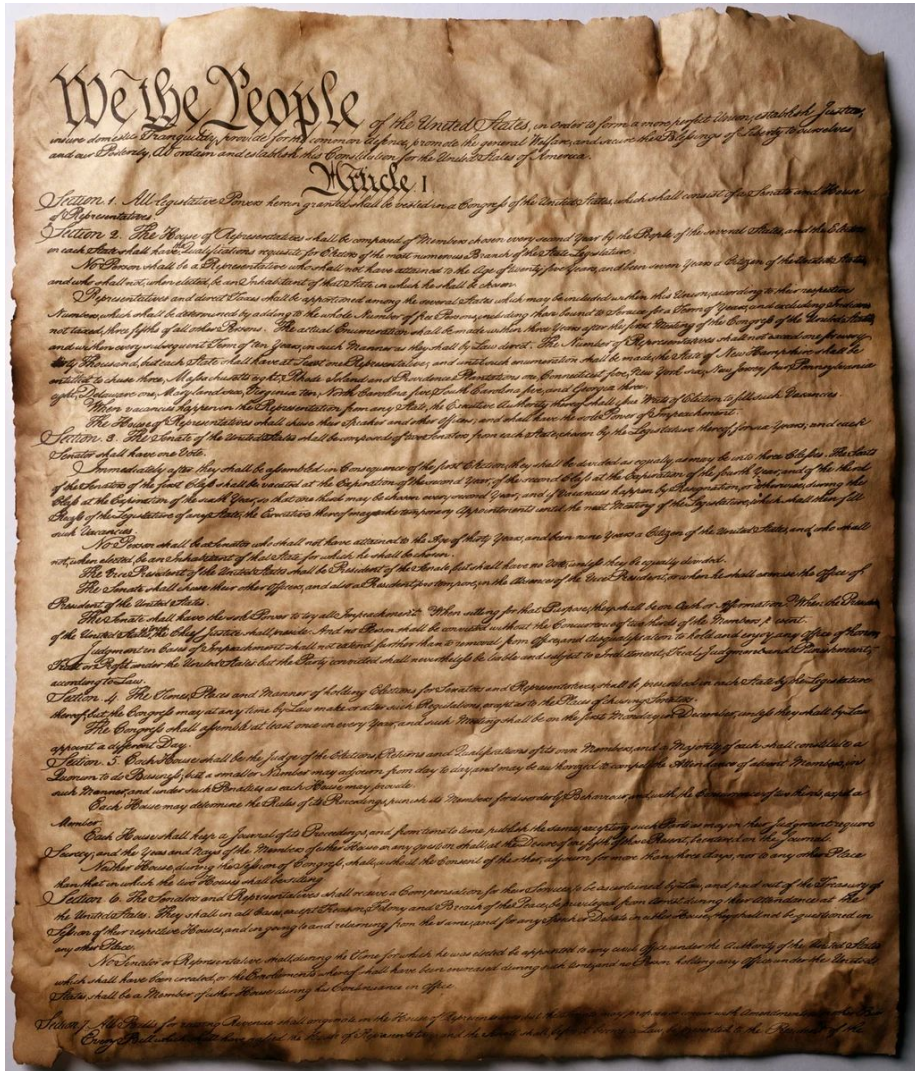 We the People of the United States, in order to form a more perfect Union, establish Justice,
insure domestic Tranquility, provide for the common defence, promote the general Welfare, and secure the Blessings of Liberty to ourselves
and our Posterity, do ordain and establish this Constitution for the United States of America.
Article I
Section 1. All legislative Powers herein granted shall be vested in a Congress of the United States, which shall consist of a Senate and House
of Representatives
Section 2. The House of Representatives shall be composed of Members chosen every second Year by the People of the several States, and the Electors
in each State shall have the Qualifications requisite for Electors of the most numerous Branch of the State Legislature
No Person shall be a Representative who shall not have attained to the Age of twenty five Years, and been seven Years a Citizen of the United States
and who shall not, when elected, be an Inhabitant of that State in which he shall be chosen
Representatives and direct Taxes shall be apportioned among the several States which may be included within this Union, according to their respective
Numbers, which shall be determined by adding to the whole Number of free Persons, including those bound to Service for a Term of Years, and excluding Indians
not taxed, three fifths of all other Persons. The actual Enumeration shall be made within three Years after the first Meeting of the Congress of the United States
and within every subsequent Term of ten Years, in such Manner as they shall by Law direct. The Number of Representatives shall not exceed one for every
thirty Thousand, but each State shall have at Least one Representative; and until such enumeration shall be made, the State of New Hampshire shall be
entitled to chuse three, Massachusetts eight, Rhode Island and Providence Plantations one, Connecticut five, New York six, New Jersey four, Pennsylvania
eight, Delaware one, Maryland six, Virginia ten, North Carolina five, South Carolina five, and Georgia three.
When vacancies happen in the Representation from any State, the Executive Authority thereof shall issue Writs of Election to fill such Vacancies.
The House of Representatives shall chuse their Speaker and other Officers; and shall have the sole Power of Impeachment.
Section 3. The Senate of the United States shall be composed of two Senators from each State, chosen by the Legislature thereof, for six Years; and each
Senator shall have one Vote.
Immediately after they shall be assembled in Consequence of the first Election, they shall be divided as equally as may be into three Classes. The Seats
of the Senators of the first Class shall be vacated at the Expiration of the second Year, of the second Class at the Expiration of the fourth Year, and of the third
Class at the Expiration of the sixth Year, so that one third may be chosen every second Year; and if Vacancies happen by Resignation, or otherwise, during the
Recess of the Legislature of any State, the Executive thereof may make temporary Appointments until the next Meeting of the Legislature, which shall then fill
such Vacancies.
No Person shall be a Senator who shall not have attained to the Age of thirty Years, and been nine Years a Citizen of the United States, and who shall
not, when elected, be an Inhabitant of that State for which he shall be chosen.
The Vice President of the United States shall be President of the Senate, but shall have no Vote, unless they be equally divided.
The Senate shall chuse their other Officers, and also a President pro tempore, in the Absence of the Vice President, or when he shall exercise the Office of
President of the United States.
The Senate shall have the sole Power to try all Impeachments. When sitting for that Purpose, they shall be on Oath or Affirmation. When the President
of the United States, the Chief Justice shall preside: And no Person shall be convicted without the Concurrence of two thirds of the Members present.
Judgment in Cases of Impeachment shall not extend further than to removal from Office, and disqualification to hold and enjoy any Office of honor,
Trust or Profit under the United States but the Party convicted shall nevertheless be liable and subject to Indictment, Trial, Judgment and Punishment,
according to Law.
Section 4. The Times, Places and Manner of holding Elections for Senators and Representatives, shall be prescribed in each State by the Legislature
thereof; but the Congress may at any time by Law make or alter such Regulations, except as to the Places of chusing Senators.
The Congress shall assemble at least once in every Year, and such Meeting shall be on the first Monday in December, unless they shall by Law
appoint a different Day.
Section 5. Each House shall be the Judge of the Elections, Returns and Qualifications of its own Members, and a Majority of each shall constitute a
Quorum to do Business; but a smaller Number may adjourn from day to day, and may be authorized to compel the Attendance of absent Members, in
such Manner, and under such Penalties as each House may provide.
Each House may determine the Rules of its Proceedings, punish its Members for disorderly Behaviour, and, with the Concurrence of two thirds, expel a
Member.
Each House shall keep a Journal of its Proceedings, and from time to time publish the same, excepting such Parts as may in their Judgment require
Secrecy; and the Yeas and Nays of the Members of either House on any question shall, at the Desire of one fifth of those Present, be entered on the Journal.
Neither House, during the Session of Congress, shall, without the Consent of the other, adjourn for more than three days, nor to any other Place
than that in which the two Houses shall be sitting
Section 6. The Senators and Representatives shall receive a Compensation for their Services, to be ascertained by Law, and paid out of the Treasury of
the United States. They shall in all Cases, except Treason, Felony and Breach of the Peace, be privileged from Arrest during their Attendance at the
Session of their respective Houses, and in going to and returning from the same; and for any Speech or Debate in either House, they shall not be questioned in
any other Place.
No Senator or Representative shall, during the Time for which he was elected, be appointed to any civil Office under the Authority of the United States
which shall have been created, or the Emoluments whereof shall have been increased during such time; and no Person holding any Office under the United
States, shall be a Member of either House during his Continuance in Office
Section 7. All Bills for raising Revenue shall originate in the House of Representatives; but the Senate may propose or concur with Amendments as on other Bills
Every Bill which shall have passed the House of Representatives and the Senate, shall, before it become a Law, be presented to the President of the